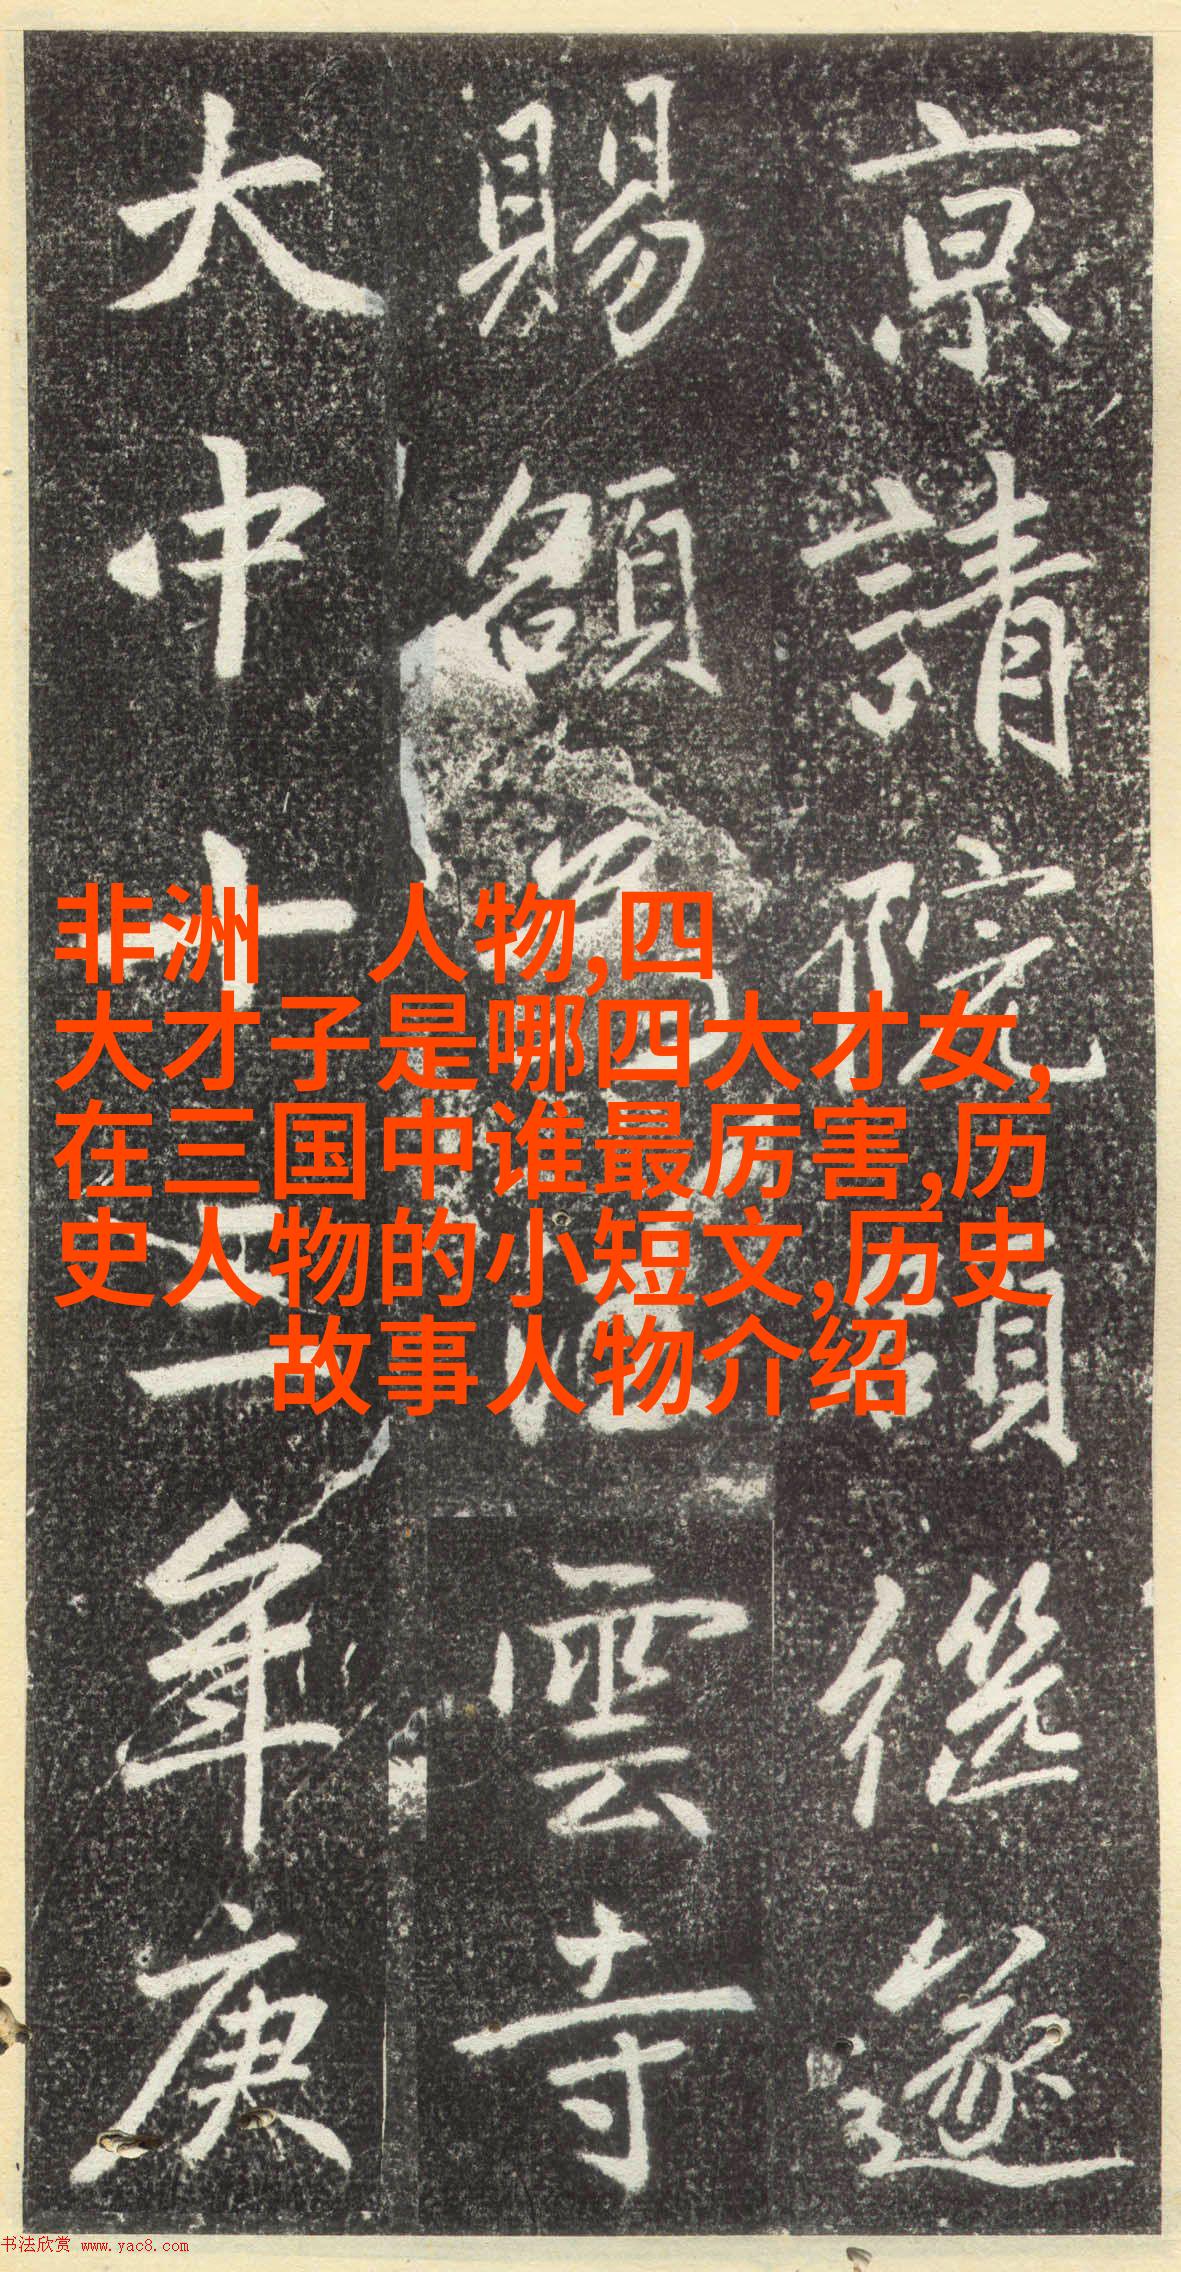 京請院額遂
賜額為雲寺
大中十年庚
非洲 人物,四
大才子是哪四大才女,
在三国中谁最厉害,历
史人物的小短文,历史
故事人物介绍
书法欣赏 www.yac8.com